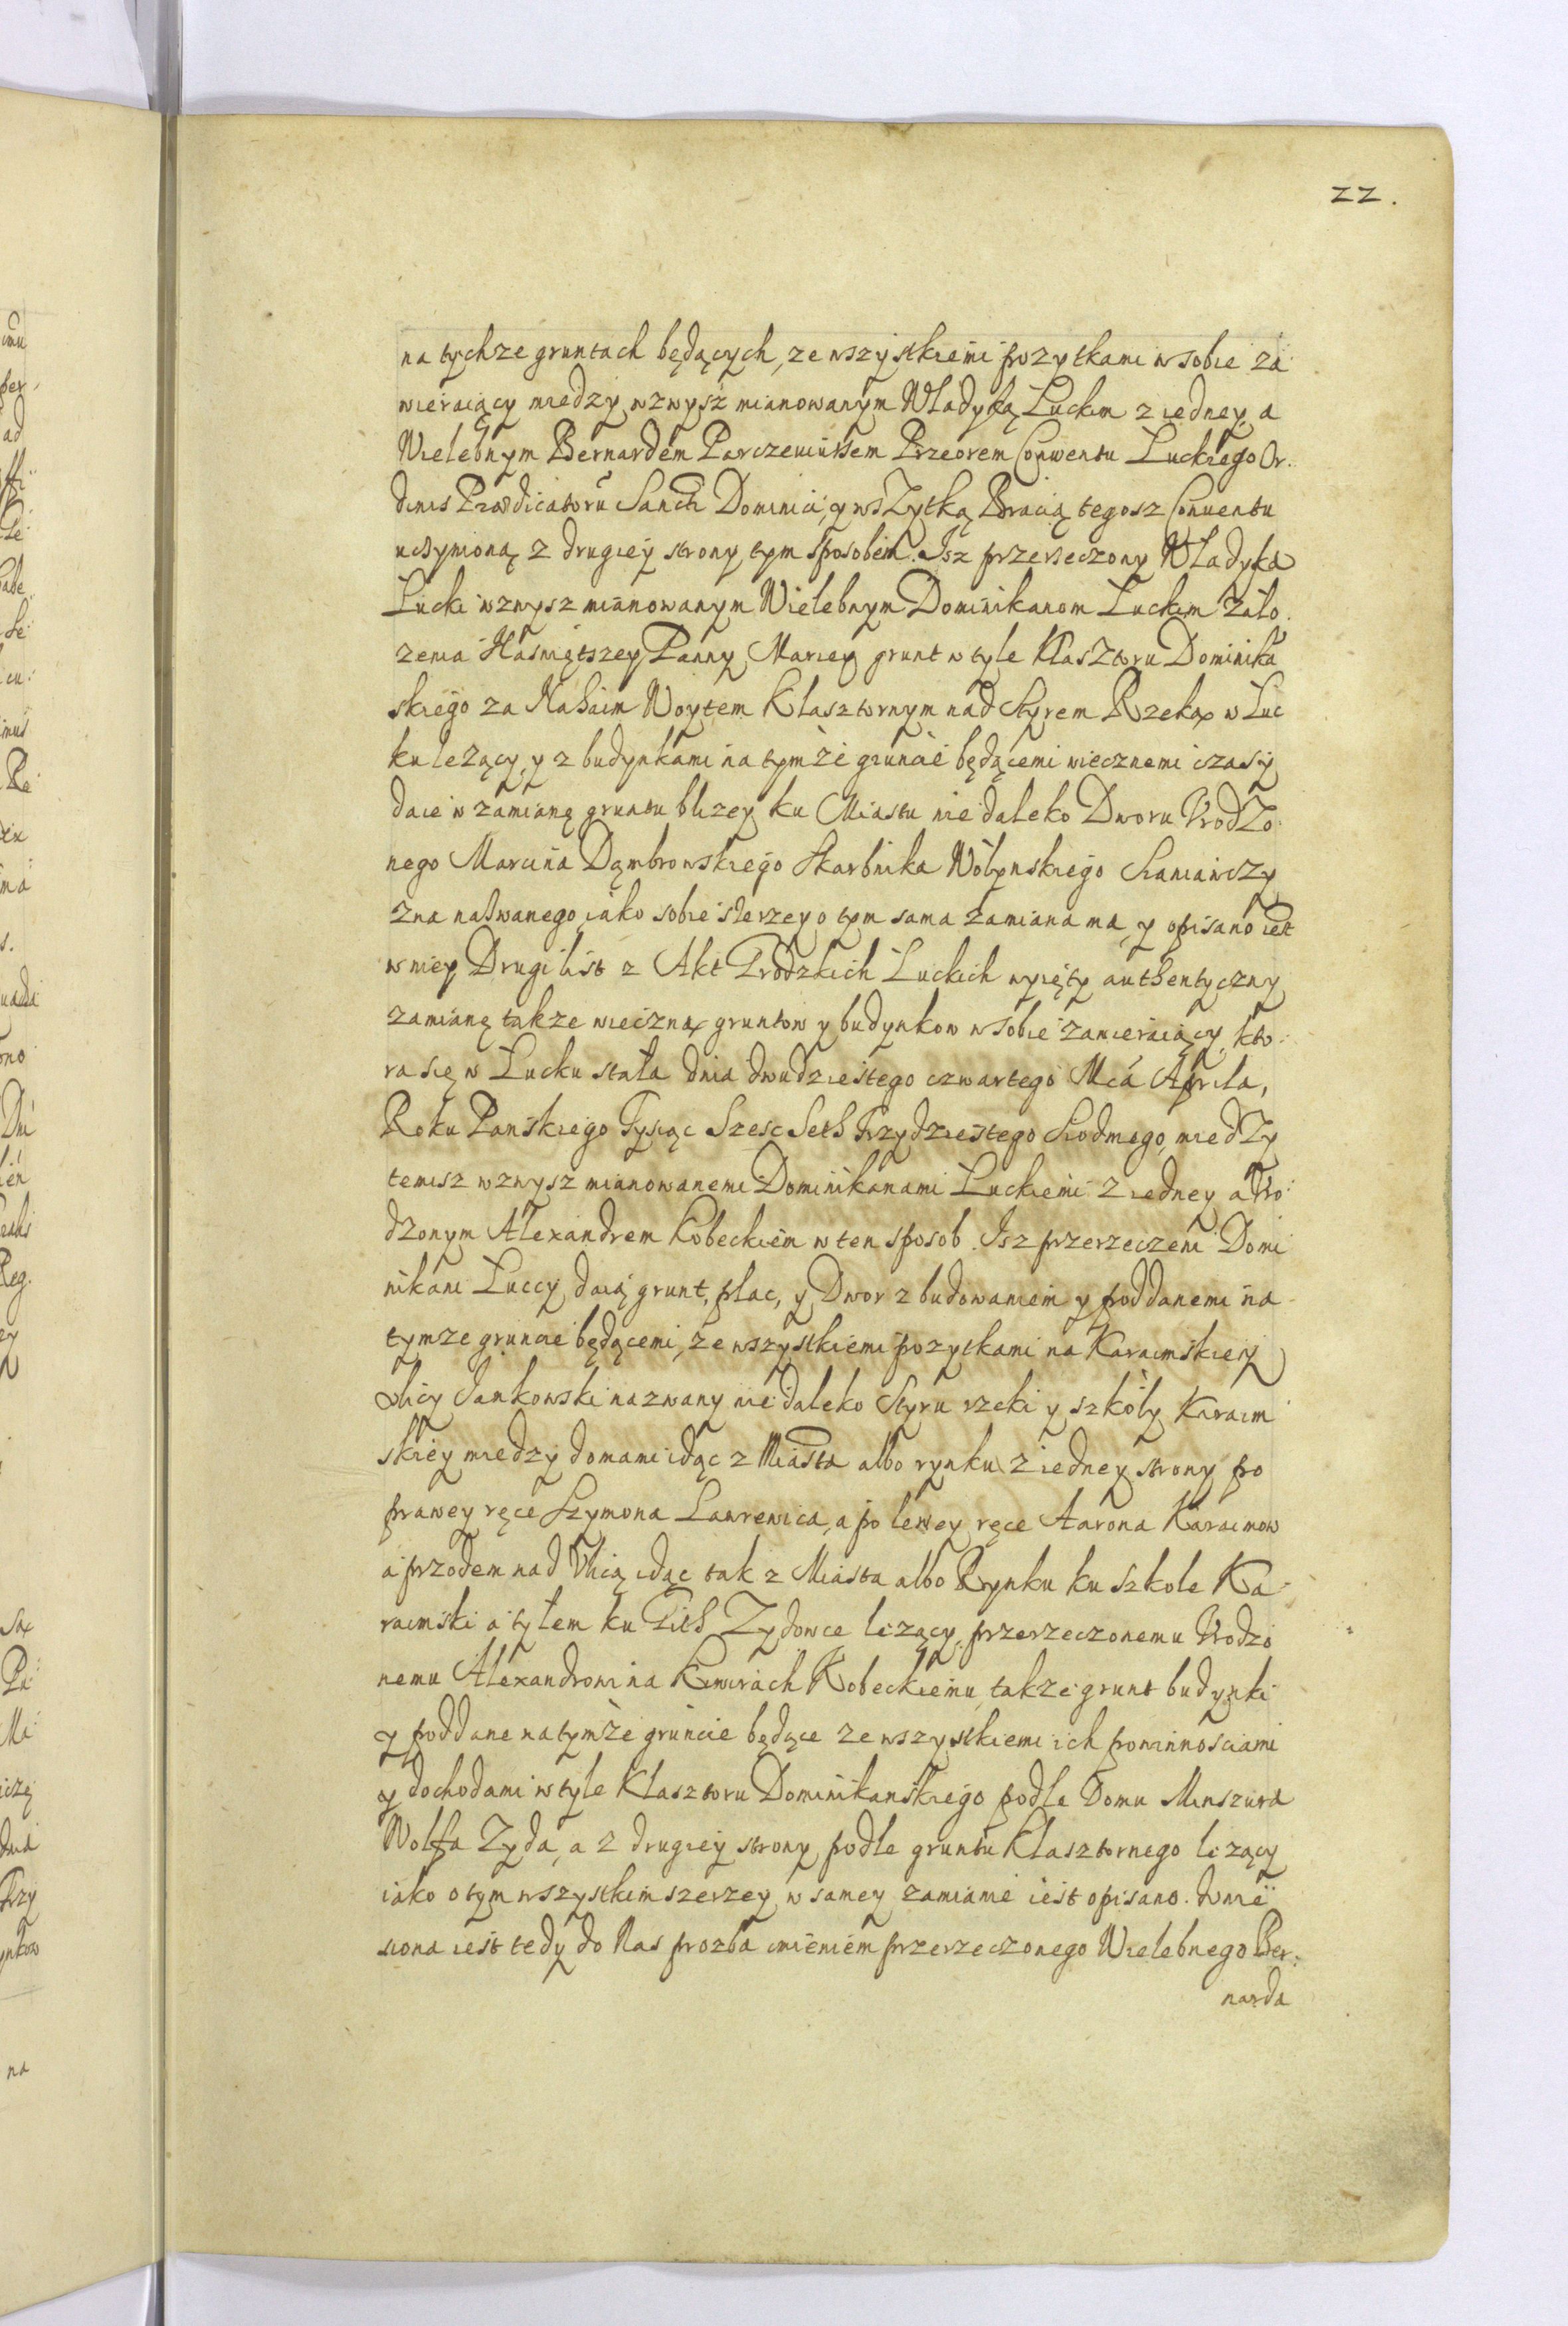 22.
na tychze gruntach będących, ze wszystkiemi pozytkami w sobie za
wieraiący miedzy wzwysz mianowanym Władyką Luckim z iedney a
Wielebnym Bernardem Parczeuiussem Przeorem Conwentu Luckiego Or.
dinis Prædicatorū Sancti Dominici, y wszytką Bracią tegosz Conuentu
uczynioną z drugiey strony tym sposobem. Isz przerzeczony Władyka
Lucki wzwysz mianowanym Wielebnym Dominikanom Luckim zało
zenia Naswiętszey Panny Mariey grunt w tyle Klasztoru Dominika
skiego za Nahaim Woytem Klasztornym nad Styrem Rzeką w Luc
ku leżący, y z budynkami na tymże gruncie będącemi wiecznemi czasy
daie w zamianę gruntu blizey ku Miastu nie daleko Dworu Vrodzo
nego Marcina Dąmbrowskiego Skarbnika Wołynskiego
zna nazwanego, iako sobie szerzey o tym sama zamiana ma, y opisano iest
w niey Drugi list z Akt Grodzkich Luckich wyięty authentyczny
zamianę takze wieczną gruntow y budynkow w sobie zawieraiący, kto
ra się w Lucku stała dnia dwudziestego czwartego Mca Aprila,
Roku Panskiego Tysiąc Szesc Seth Trzydziestego Siodmego, miedzy
temisz wzwysz mianowanemi Dominikanami Luckiemi z iedney a Vro
dzonym Alexandrem Kobeckiem w ten sposob. Isz przerzeczeni Domi
nikani Luccy daią grunt, plac, y Dwor z budowaniem y poddanemi na
tymze gruncie będącemi, ze wszystkiemi pozytkami na Karaimskiey
vlicy Jankowski nazwany nie daleko Styru rzeki y szkoły Karaim
skiey miedzy domami idąc z Miasta albo rynku z iedney strony po
prawey ręce Szymona Lawrewica, a po lewey ręce Aarona Karaimow
a przodem nad Vlicą idąc tak z Miasta albo Rynku ku szkole Ka
raimski a tyłem ku Zydowce liezący, przerzeczonemu Vrodzo
nemu Alexandrowi na Kiwirach Kobeckiemu, takze grunt budynki
y poddane na tymże gruncie będące ze wszystkiemi ich powinnosciami
y dochodami w tyle Klasztoru Dominikanskiego podle Domu Minszura
Wolfa Zyda, a z drugiey strony podle gruntu Klasztornego lezący
iako o tym wszystkim szerzey w samey zamianie iest opisano. Wnie
siona iest tedy do Nas prozba imieniem przerzeczonego Wielebnego Ber:
narda